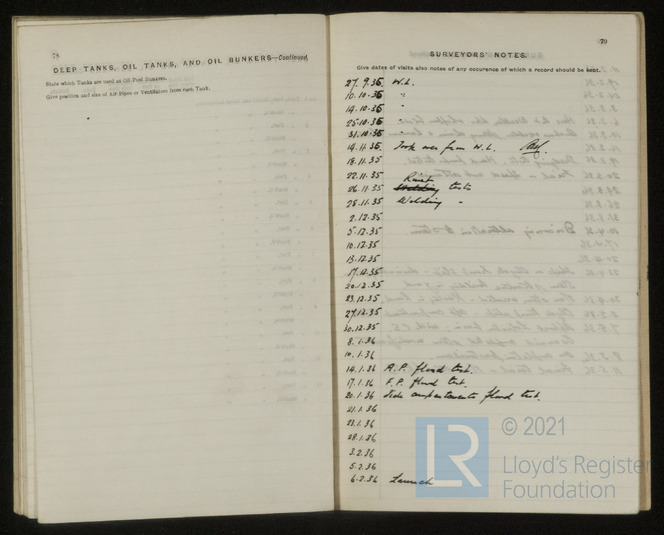 78
DEEP TANKS, OIL TANKS, AND OIL BUNKERS—Continued
State which Tanks are used as Oil Fuel Bunkers.
Give position and size of Air Pipes or Ventilators from each Tank.
79
SURVEYORS' NOTES.
Give dates of visits also notes of any occurence of which a record should be kept.
27.9.35 W.L.
10.10.35 "
14.10.35 "
25.10.35 "
31.10.35 "
14.11.35 Took over from W.L.
18.11.35
22.11.35 Rivet
26.11.35 Welding tests
28.11.35 Welding "
2.12.35
5.12.35
10.12.35
13.12.35
17.12.35
20.12.35
23.12.35
27.12.35
30.12.35
8.1.36
10.1.36
14.1.36 A.P. flood test.
17.1.36 F.P. flood test.
20.1.36 Side compartments flood test.
21.1.36
23.1.36
28.1.36
3.2.36
5.2.36
6.2.36 Launch
LR © 2021
Lloyd's Register
Foundation